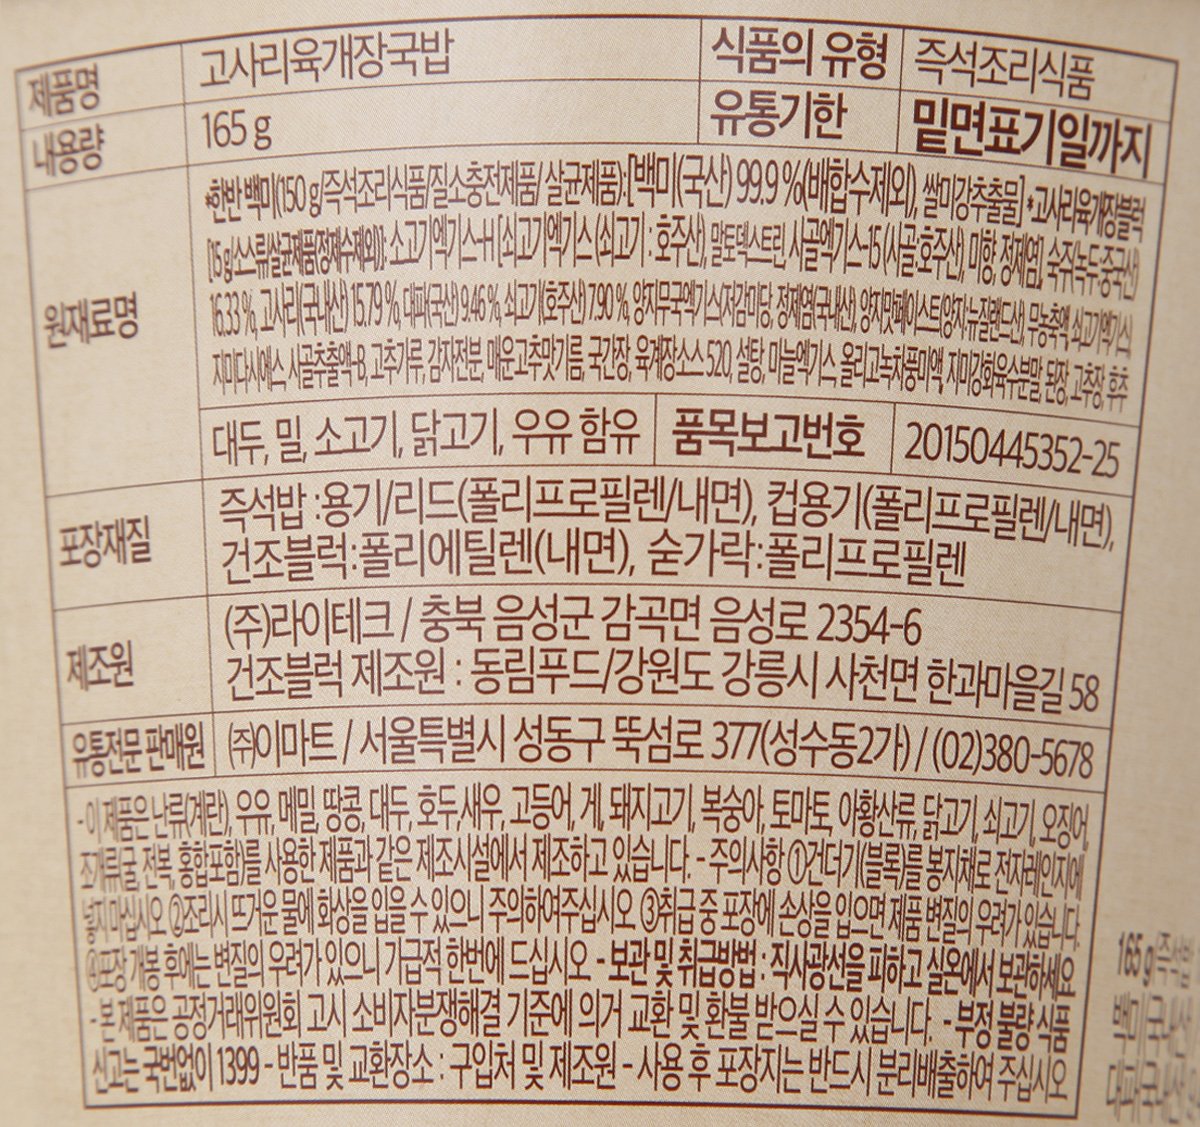 제품명 고사리육개장국밥 식품의 유형 즉석조리식품
내용량 165 g 유통기한 밑면표기일까지
원재료명
*한반 백미(150 g/즉석조리식품/질소충전제품/ 살균제품):[백미(국산) 99.9 %(배합수제외), 쌀미강추출물] *고사리육개장블럭
[15 g/소스류/살균제품(정제수제외)]: 소고기엑기스-H [쇠고기엑기스 (쇠고기 : 호주산), 말토덱스트린, 사골엑기스-15 (사골:호주산), 미향, 정제염], 숙주(녹두:중국산)
16.33 %, 고사리(국내산) 15.79 %, 대파(국산) 9.46 %, 쇠고기(호주산) 7.90 %, 양지무국엑기스(저감미당, 정제염(국내산), 양지맛페이스트(양지:뉴질랜드산), 무농축액, 쇠고기엑기스),
지미다시에스, 사골추출액-B, 고추가루, 감자전분, 매운고추맛기름, 국간장, 육계장소스 520, 설탕, 마늘엑기스, 올리고녹차풍미액, 지미강화육수분말, 된장, 고추장, 후추
대두, 밀, 소고기, 닭고기, 우유 함유 품목보고번호 20150445352-25
포장재질
즉석밥 :용기/리드(폴리프로필렌/내면), 컵용기(폴리프로필렌/내면),
건조블럭:폴리에틸렌(내면), 숟가락:폴리프로필렌
제조원
(주)라이테크 / 충북 음성군 감곡면 음성로 2354-6
건조블럭 제조원 : 동림푸드/강원도 강릉시 사천면 한과마을길 58
유통전문 판매원 ㈜이마트 / 서울특별시 성동구 뚝섬로 377(성수동2가) / (02)380-5678
- 이 제품은 난류(계란), 우유, 메밀, 땅콩, 대두, 호두,새우, 고등어, 게, 돼지고기, 복숭아, 토마토, 아황산류, 닭고기, 쇠고기, 오징어,
조개류(굴, 전복, 홍합포함)를 사용한 제품과 같은 제조시설에서 제조하고 있습니다. - 주의사항 ①건더기(블록)를 봉지채로 전자레인지에
넣지 마십시오 ②조리시 뜨거운 물에 화상을 입을 수 있으니 주의하여주십시오 ③취급 중 포장에 손상을 입으면 제품 변질의 우려가 있습니다.
④포장 개봉 후에는 변질의 우려가 있으니 가급적 한번에 드십시오 - 보관 및 취급방법 : 직사광선을 피하고 실온에서 보관하세요
- 본 제품은 공정거래위원회 고시 소비자분쟁해결 기준에 의거 교환 및 환불 받으실 수 있습니다. - 부정 불량 식품
신고는 국번없이 1399 - 반품 및 교환장소 : 구입처 및 제조원 - 사용 후 포장지는 반드시 분리배출하여 주십시오
165 g(즉석밥
백미(국내산
대파(국내산